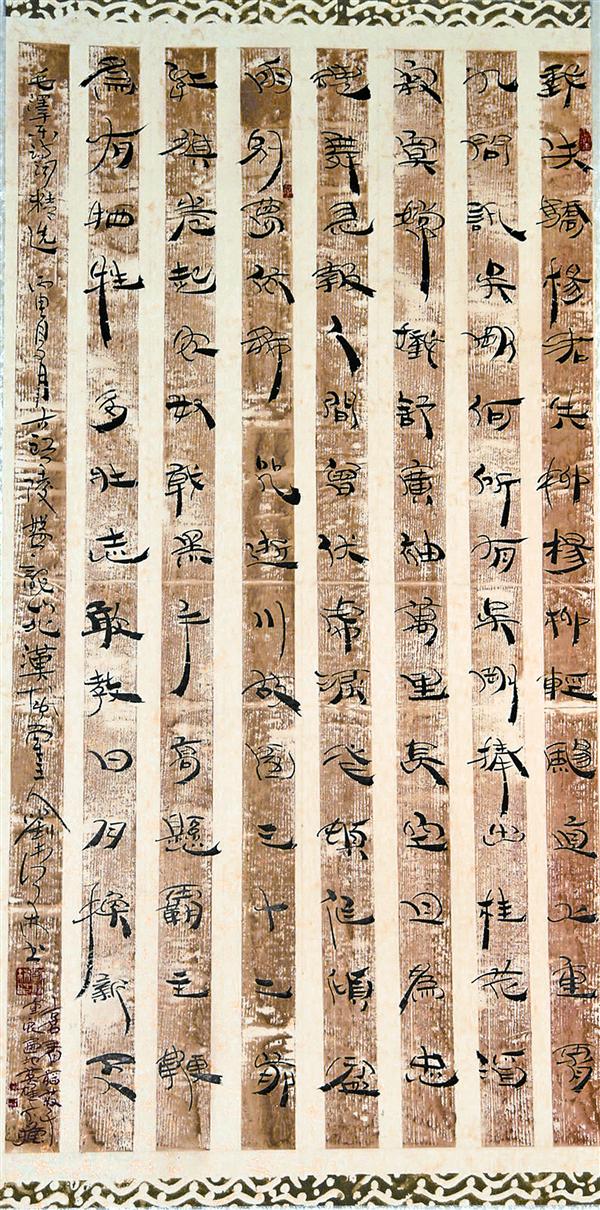 我失驕楊君失柳楊柳輕颺直上重霄
九問訊吳剛何所有吳剛捧出桂花酒
寂寞嫦娥舒廣袖萬里長空且為忠
魂舞忽報人間曾伏虎淚飛頓作傾盆
雨別夢依稀咒逝川故園三十二前
紅旗卷起農奴戟黑手高懸霸主鞭
為有犧牲多壯志敢教日月換新天
毛澤東詩詞精選 丙申